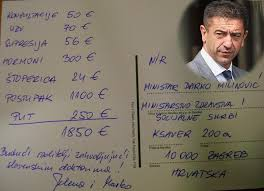 KONZULTACIJE 50 €
UZV 70 €
SUPRESIJA 56 €
HORMONI 300 €
ŠTOPERICA 24 €
POSTUPAK 1100 €
PUT 250 €
1850 €
Budući roditelji zahvaljujući
slovenskim doktorima!
Jelena i Marko
N/R
MINISTAR DARKO MILINOVIĆ
MINISTARSTVO ZDRAVSTVA I
SOCIJALNE SKRBI
KSAVER 200a
10 000 ZAGREB
HRVATSKA